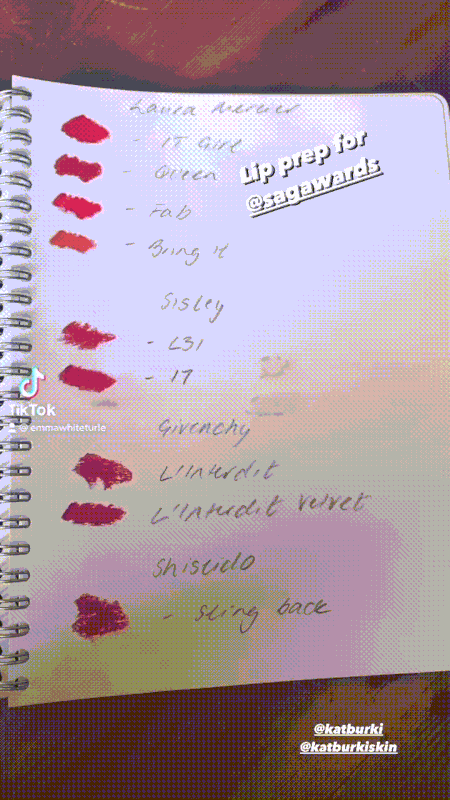 Laura Mercier
- IT Girl
- Queen
- Fab
- Bring it
Lip prep for
@sagawards
Sisley
- L31
- 17
TikTok
@emmawhiteturle
Givenchy
L'Interdit
L'Interdit Velvet
Shiseido
- Sling back
@katburki
@katburkiskin